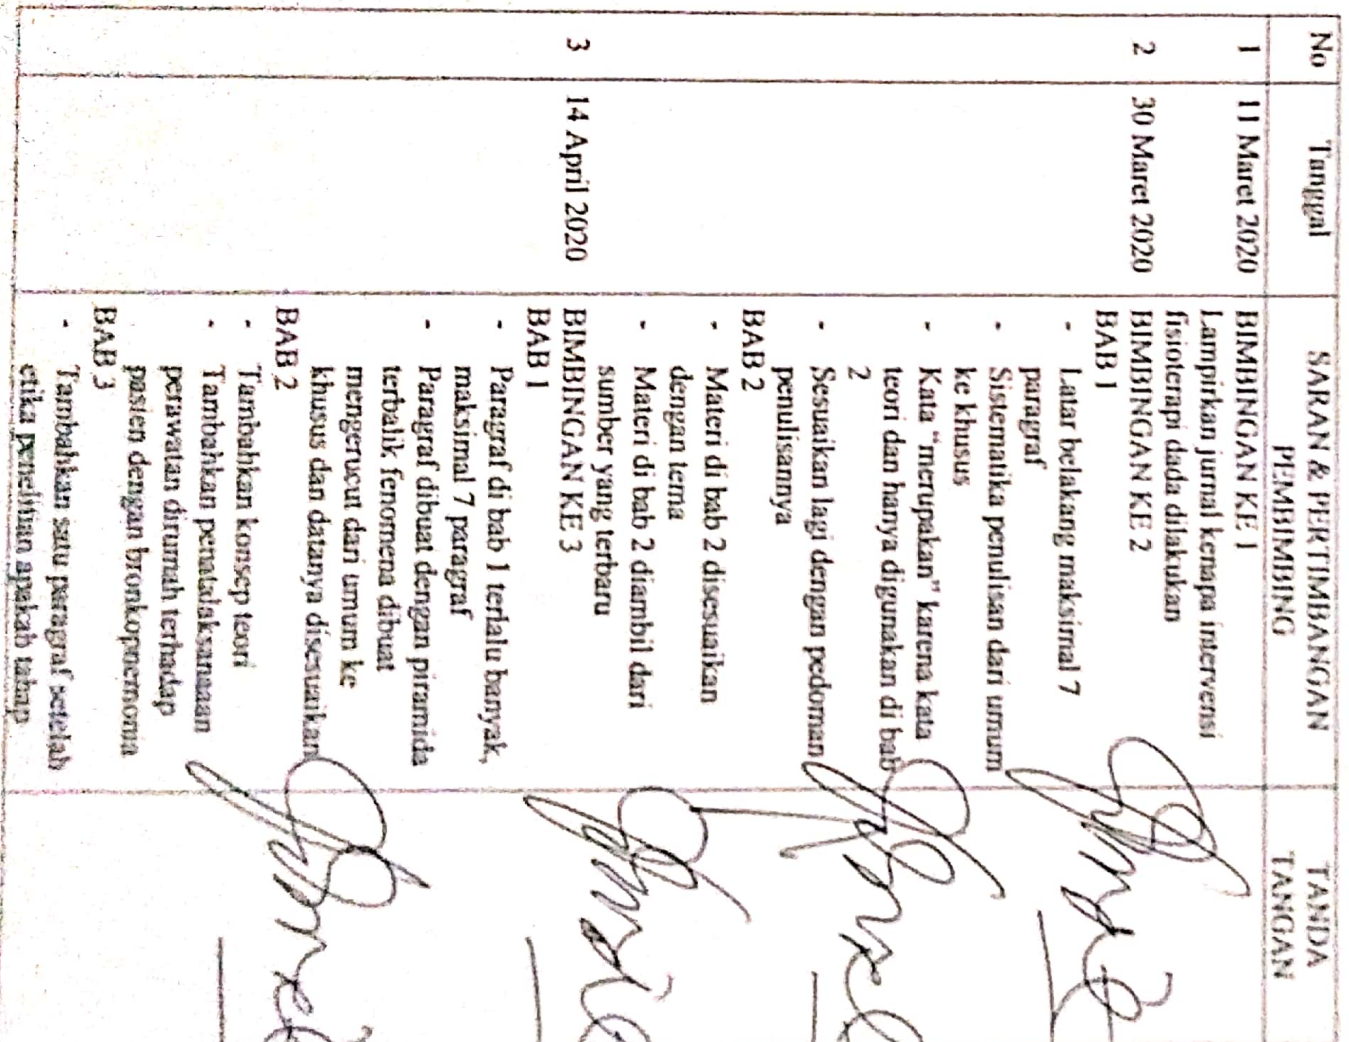 No Tanggal SARAN & PERTIMBANGAN TANDA
PEMBIMBING TANGAN
1 11 Maret 2020 BIMBINGAN KE 1
Lampirkan jurnal kenapa intervensi
fisioterapi dada dilakukan
2 30 Maret 2020 BIMBINGAN KE 2
BAB 1
- Latar belakang maksimal 7
paragraf
- Sistematika penulisan dari umum
ke khusus
- Kata "merupakan" karena kata
teori dan hanya digunakan di bab
2
- Sesuaikan lagi dengan pedoman
penulisannya
BAB 2
- Materi di bab 2 disesuaikan
dengan tema
- Materi di bab 2 diambil dari
sumber yang terbaru
3 14 April 2020 BIMBINGAN KE 3
BAB 1
- Paragraf di bab 1 terlalu banyak,
maksimal 7 paragraf
- Paragraf dibuat dengan piramida
terbalik fenomena dibuat
mengerucut dari umum ke
khusus dan datanya disesuaikan
BAB 2
- Tambahkan konsep teori
- Tambahkan penatalaksanaan
perawatan dirumah terhadap
pasien dengan bronkopnemonia
BAB 3
- Tambahkan satu paragraf setelah
etika penelitian apakah tahap